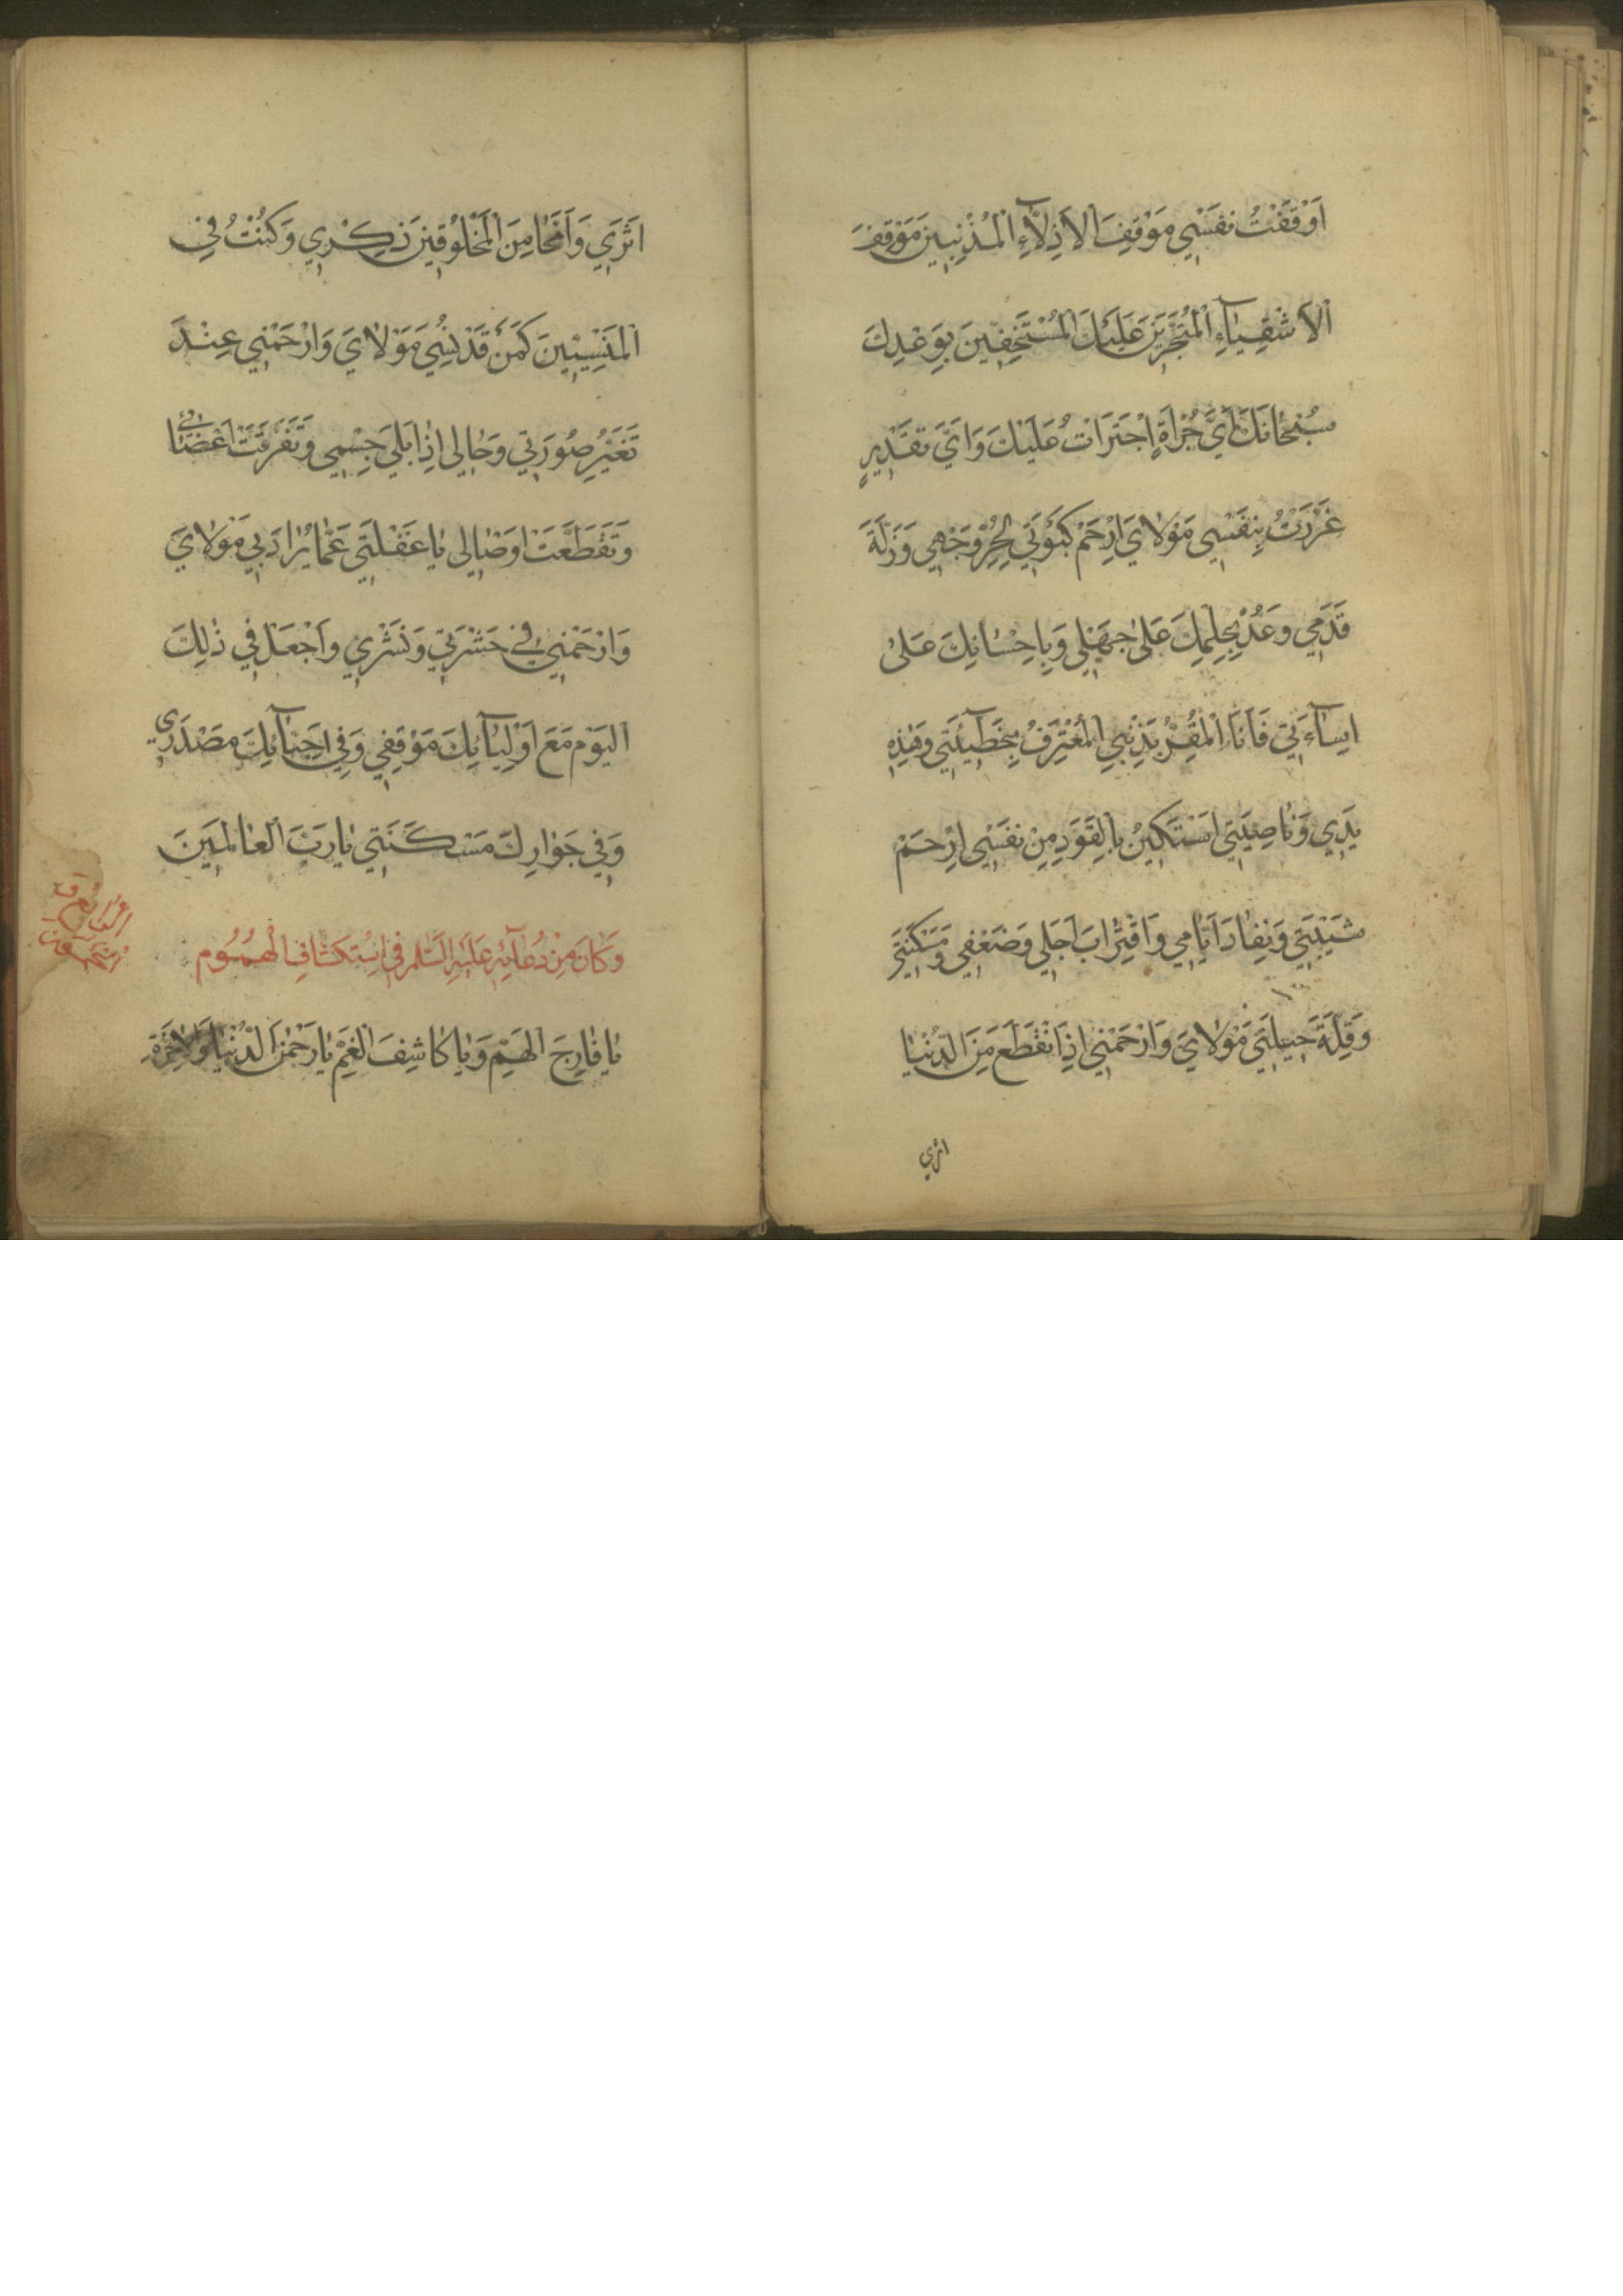 اَوْقَفْتُ نَفْسِي مَوْقِفَ الْاَذِلَّاۤءِ الْمُذْنِبِينَ مَوْقِفَ
الْاَشْقِيَاۤءِ الْمُتَجَرِّينَ عَلَيْكَ الْمُسْتَخِفِّينَ بِوَعْدِكَ
سُبْحَانَكَ اَيَّ جُرْاَةٍ اِجْتَرَاْتُ عَلَيْكَ وَاَيَّ تَقْدِيرٍ
غَرَّرْتُ بِنَفْسِي مَوْلَايَ اِرْحَمْ كَبْوَتِي لِحُرِّ وَجْهِي وَزَلَّةَ
قَدَمِي وَعُدْ بِحِلْمِكَ عَلَى جَهْلِي وَبِاِحْسَانِكَ عَلَى
اِسَاۤءَتِي فَاَنَا الْمُقِرُّ بِذَنْبِي الْمُعْتَرِفُ بِخَطِيۤئَتِي وَهَذِهِ
يَدِي وَنَاصِيَتِي اَسْتَكِينُ بِالْقَوَدِ مِنْ نَفْسِي اِرْحَمْ
شَيْبَتِي وَنَفَادَ اَيَّامِي وَاقْتِرَابَ اَجَلِي وَضَعْفِي وَمَسْكَنَتِي
وَقِلَّةَ حِيلَتِي مَوْلَايَ وَارْحَمْنِي اِذَا انْقَطَعَ مِنَ الدُّنْيَا
اثري
اَثَرِي وَامَّحَا مِنَ الْمَخْلُوقِينَ ذِكْرِي وَكُنْتُ فِي
الْمَنْسِيِّينَ كَمَنْ قَدْ نُسِيَ مَوْلَايَ وَارْحَمْنِي عِنْدَ
تَغَيُّرِ صُورَتِي وَحَالِي اِذَا بَلِيَ جِسْمِي وَتَفَرَّقَتْ اَعْضَائِي
وَتَقَطَّعَتْ اَوْصَالِي يَا غَفْلَتِي عَمَّا يُرَادُ بِي مَوْلَايَ
وَارْحَمْنِي فِي حَشْرِي وَنَشْرِي وَاجْعَلْ فِي ذَلِكَ
الْيَوْمِ مَعَ اَوْلِيَاۤئِكَ مَوْقِفِي وَفِي اَحِبَّاۤئِكَ مَصْدَرِي
وَفِي جِوَارِكَ مَسْكَنَتِي يَا رَبَّ الْعَالَمِينَ
وَكَانَ مِنْ دُعَاۤئِهِ عَلَيْهِ السَّلَمُ فِي اسْتِكْشَافِ الْهُمُومِ
يَا فَارِجَ الْهَمِّ وَيَا كَاشِفَ الْغَمِّ يَا رَحْمَنَ الدُّنْيَا وَالْاٰخِرَةِ